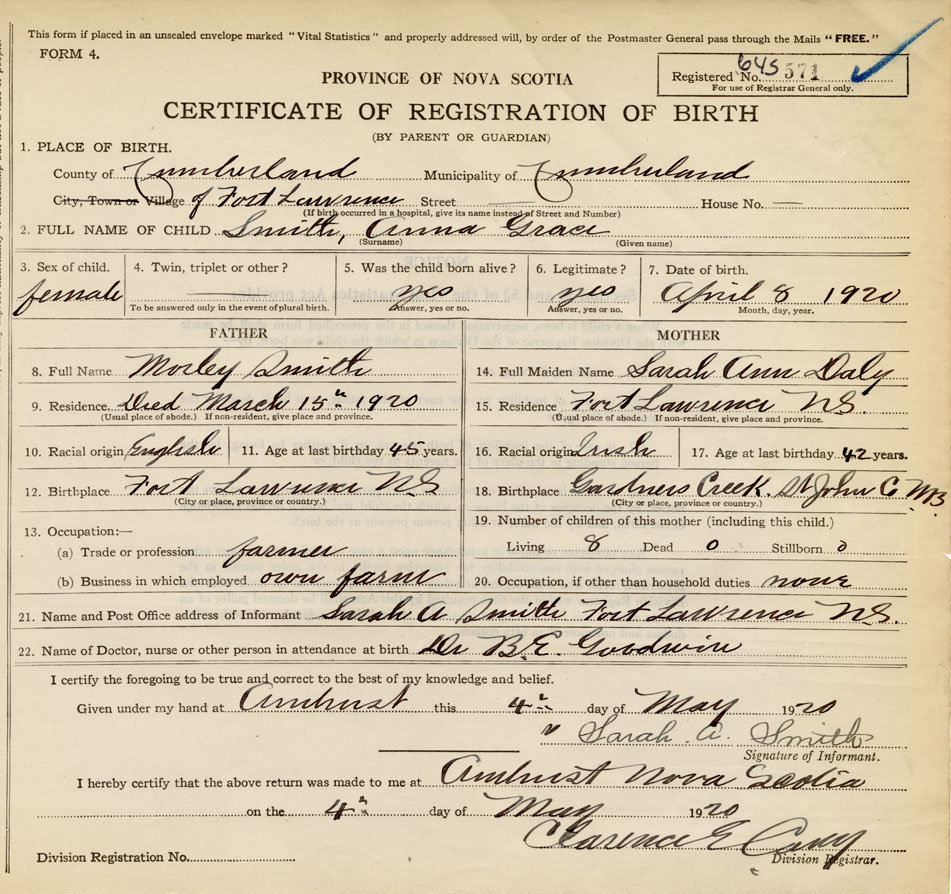 This form if placed in an unsealed envelope marked "Vital Statistics" and properly addressed will, by order of the Postmaster General pass through the Mails "FREE."
FORM 4.
Registered No. 645 571
For use of Registrar General only.
PROVINCE OF NOVA SCOTIA
CERTIFICATE OF REGISTRATION OF BIRTH
(BY PARENT OR GUARDIAN)
1. PLACE OF BIRTH.
County of Cumberland Municipality of Cumberland
City, Town or Village of Fort Lawrence Street House No. —
(If birth occurred in a hospital, give its name instead of Street and Number)
2. FULL NAME OF CHILD Smith, Anna Grace
(Surname) (Given name)
3. Sex of child. 4. Twin, triplet or other? 5. Was the child born alive? 6. Legitimate? 7. Date of birth.
female yes yes April 8 1920
To be answered only in the event of plural birth. Answer, yes or no. Answer, yes or no. Month, day, year.
FATHER
8. Full Name Morley Smith
9. Residence. Died March 15th 1920
(Usual place of abode.) If non-resident, give place and province.
10. Racial origin English 11. Age at last birthday 45 years.
12. Birthplace Fort Lawrence N S
(City or place, province or country.)
13. Occupation:—
(a) Trade or profession farmer
(b) Business in which employed own farm
MOTHER
14. Full Maiden Name Sarah Ann Daly
15. Residence Fort Lawrence N.S.
(Usual place of abode.) If non-resident, give place and province.
16. Racial origin Irish 17. Age at last birthday 42 years.
18. Birthplace Gardners Creek. St John Co NB
(City or place, province or country.)
19. Number of children of this mother (including this child.)
Living 8 Dead 0 Stillborn 0
20. Occupation, if other than household duties none
21. Name and Post Office address of Informant Sarah A Smith Fort Lawrence N.S.
22. Name of Doctor, nurse or other person in attendance at birth Dr B.E. Goodwin
I certify the foregoing to be true and correct to the best of my knowledge and belief.
Given under my hand at Amherst this 4th day of May 1920
Sarah A. Smith
Signature of Informant.
I hereby certify that the above return was made to me at Amherst Nova Scotia
on the 4th day of May 1920
Clarence E
Division Registration No. Division Registrar.